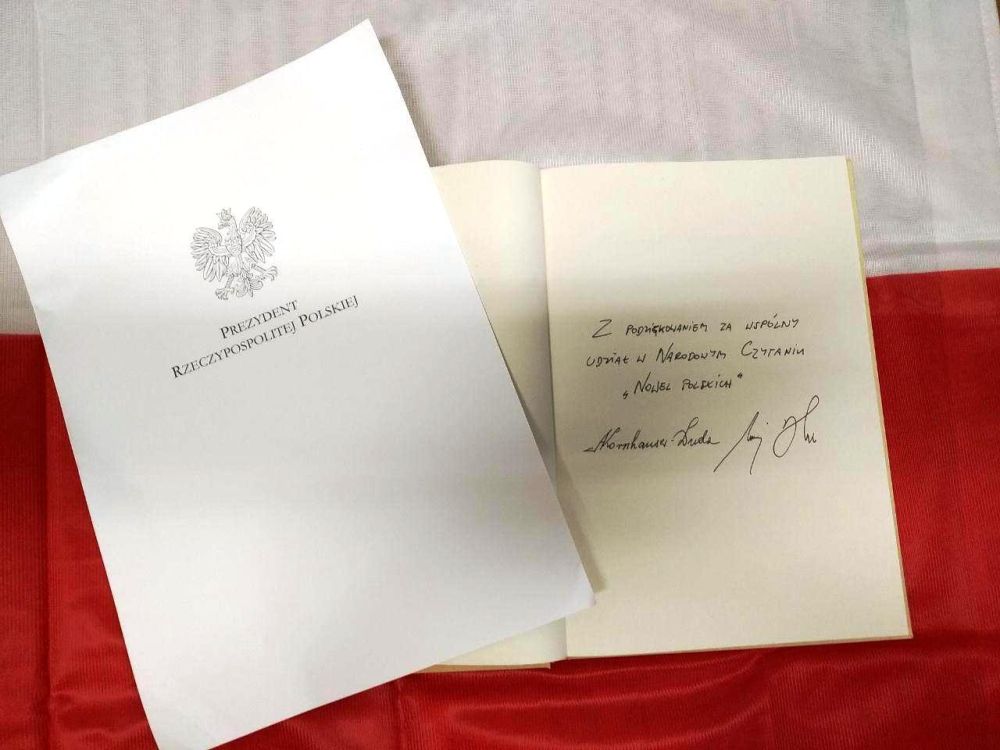 PREZYDENT
RZECZYPOSPOLITEJ POLSKIEJ
Z PODZIĘKOWANIEM ZA WSPÓLNY
UDZIAŁ W NARODOWYM CZYTANIU
„NOWEL POLSKICH"
AKornhauser-Duda